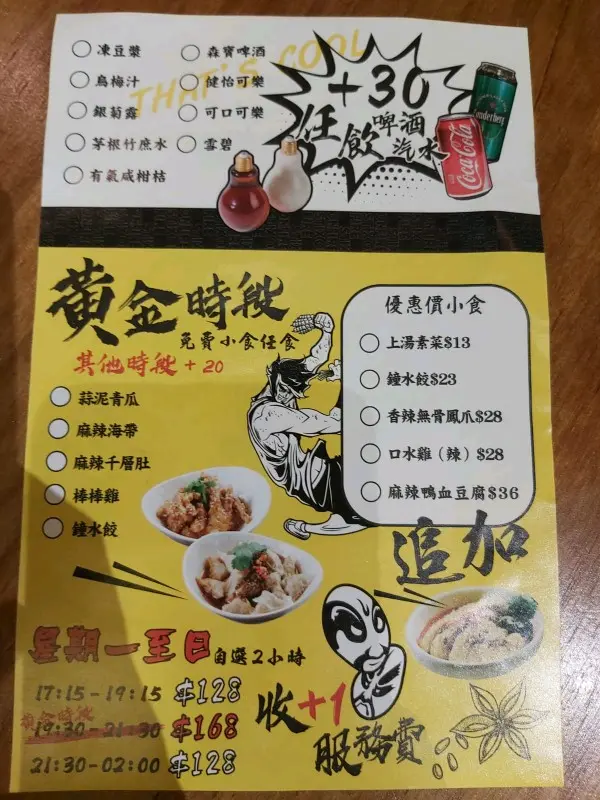 THAT'S COOL
凍豆漿
烏梅汁
銀菊露
茅根竹蔗水
有氣咸柑桔
森寶啤酒
健怡可樂
可口可樂
雪碧
+30
任飲啤酒汽水
Coca-Cola
黃金時段
免費小食任食
其他時段+20
蒜泥青瓜
麻辣海帶
麻辣千層肚
棒棒雞
鐘水餃
優惠價小食
上湯素菜$13
鐘水餃$23
香辣無骨鳳爪$28
口水雞（辣）$28
麻辣鴨血豆腐$36
追加
星期一至日自選2小時
17:15-19:15 $128
黃金時段
19:30-21:30 $168
21:30-02:00 $128
收+1
服務費